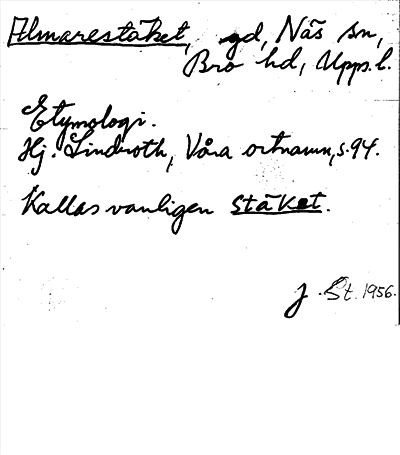 Almarestäket, gd, Näs sn,
Bro hd, Upps. l.
Etymologi.
Hj. Lindroth, Våra ortnamn, s. 94.
Kallas vanligen Stäket.
J. St. 1956.